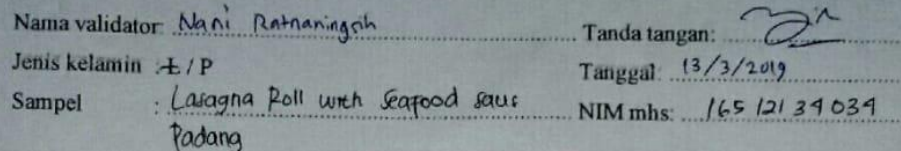 Nama validator: Nani Ratnaningsih Tanda tangan:
Jenis kelamin : L / P Tanggal: 13/3/2019
Sampel : Lasagna Roll with Seafood saus NIM mhs: 16512134034
Padang